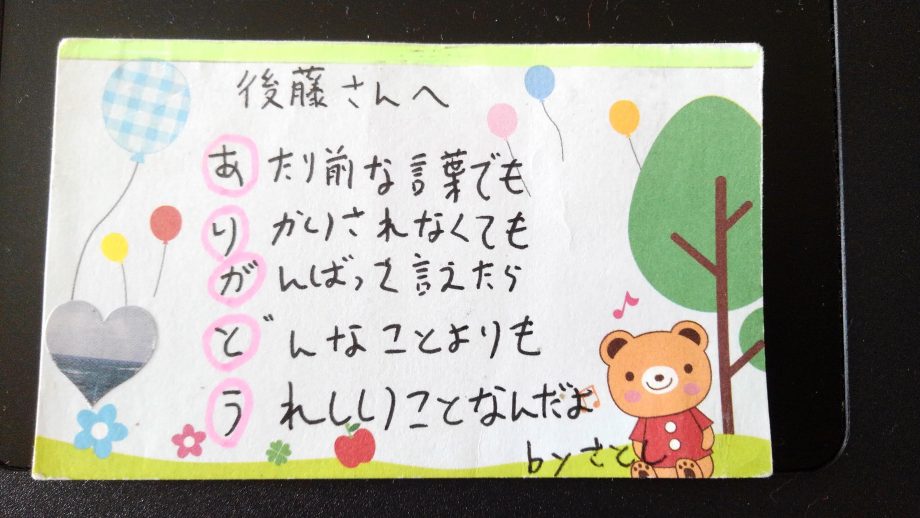 後藤さんへ
あたり前な言葉でも
りかいされなくても
がんばって言えたら
どんなことよりも
うれしいことなんだよ
byさとし